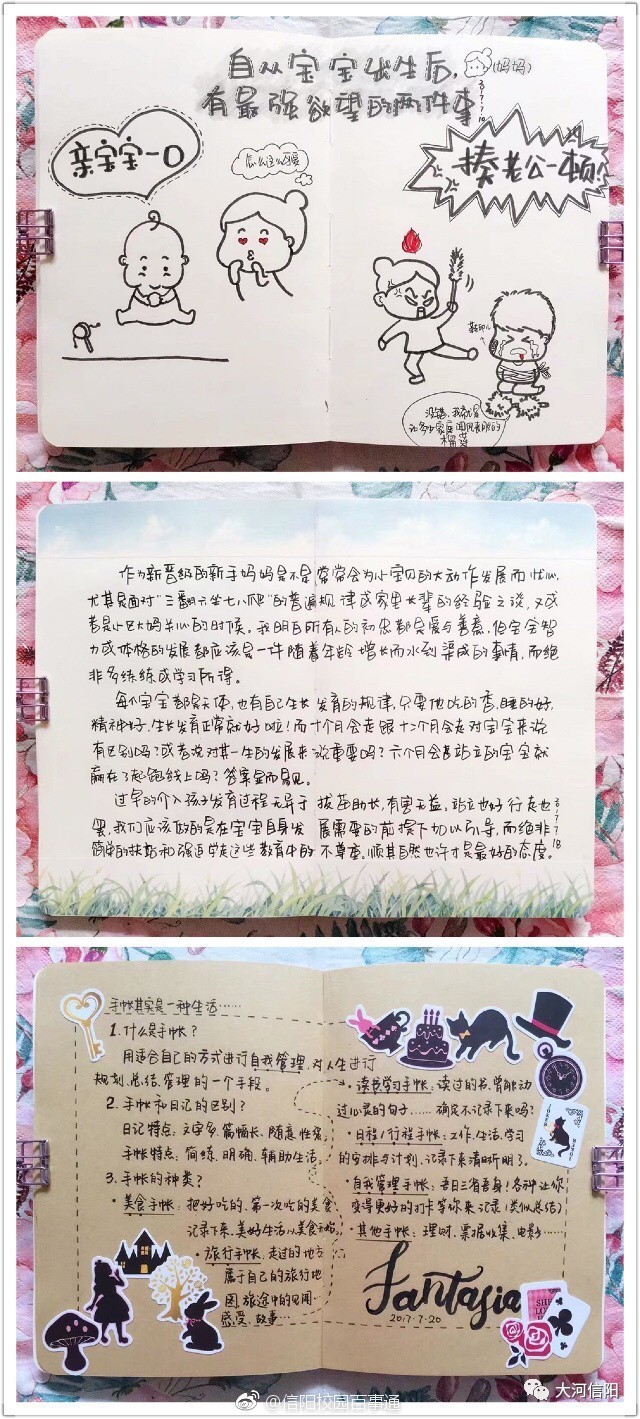 自从宝宝出生后，
有最强欲望的两件事
(妈妈)
2017.7.18
亲宝宝一口
怎么这么可爱
揍老公一顿！
没错，我就是
让多少家庭闻风丧胆的
榴莲
作为新晋级的新手妈妈是不是常常会为小宝贝的大动作发展而忧心，
尤其是面对“三翻六坐七八爬”的普遍规律或家里长辈的经验之谈，又或
者是小区大妈关心的时候。我明白所有人的初衷都是爱与善意，但宝宝智
力或体格的发展都应该是一件随着年龄增长而水到渠成的事情，而绝
非多练练或学习所得。
每个宝宝都是天体，也有自己生长发育的规律，只要他吃的香，睡的好，
精神好，生长发育正常就好啦！而十个月会走跟十二个月会走对宝宝来说
有区别吗？或者说对其一生的发展来说重要吗？六个月会甚站立的宝宝就
赢在了起跑线上吗？答案显而易见。
过早的介入孩子发育过程无异于拔苗助长，有害无益。站立也好行走也
罢，我们应该做的是在宝宝自身发展需要的前提下加以引导，而绝非
简单的扶站和强迫学走这些教育中的不尊重。顺其自然也许才是最好的态度。
2017.7.18
手帐其实是一种生活……
1.什么是手帐？
用适合自己的方式进行自我管理，对人生进行
规划、总结、管理的一个手段。
2.手帐和日记的区别？
日记特点：文字多、篇幅长、随意性强
手帐特点：简练、明确、辅助生活。
3.手帐的种类？
·美食手帐：把好吃的、第一次吃的美食
记录下来，美好生活从美食开始
·旅行手帐：走过的地方
属于自己的旅行地
图，旅途中的见闻
感受、故事…
·读书学习手帐：读过的书、曾触动
过心灵的句子……确定不记录下来吗？
·日程/行程手帐：工作、生活、学习
的安排与计划，记录下来清晰明了。
·自我管理手帐：吾日三省吾身！各种让你
变得更好的打卡等你来记录(类似总结)
·其他手帐：理财、票据收集、电影……
Fantasia
2017.7.20
JOKER
@信阳校园百事通
大河信阳